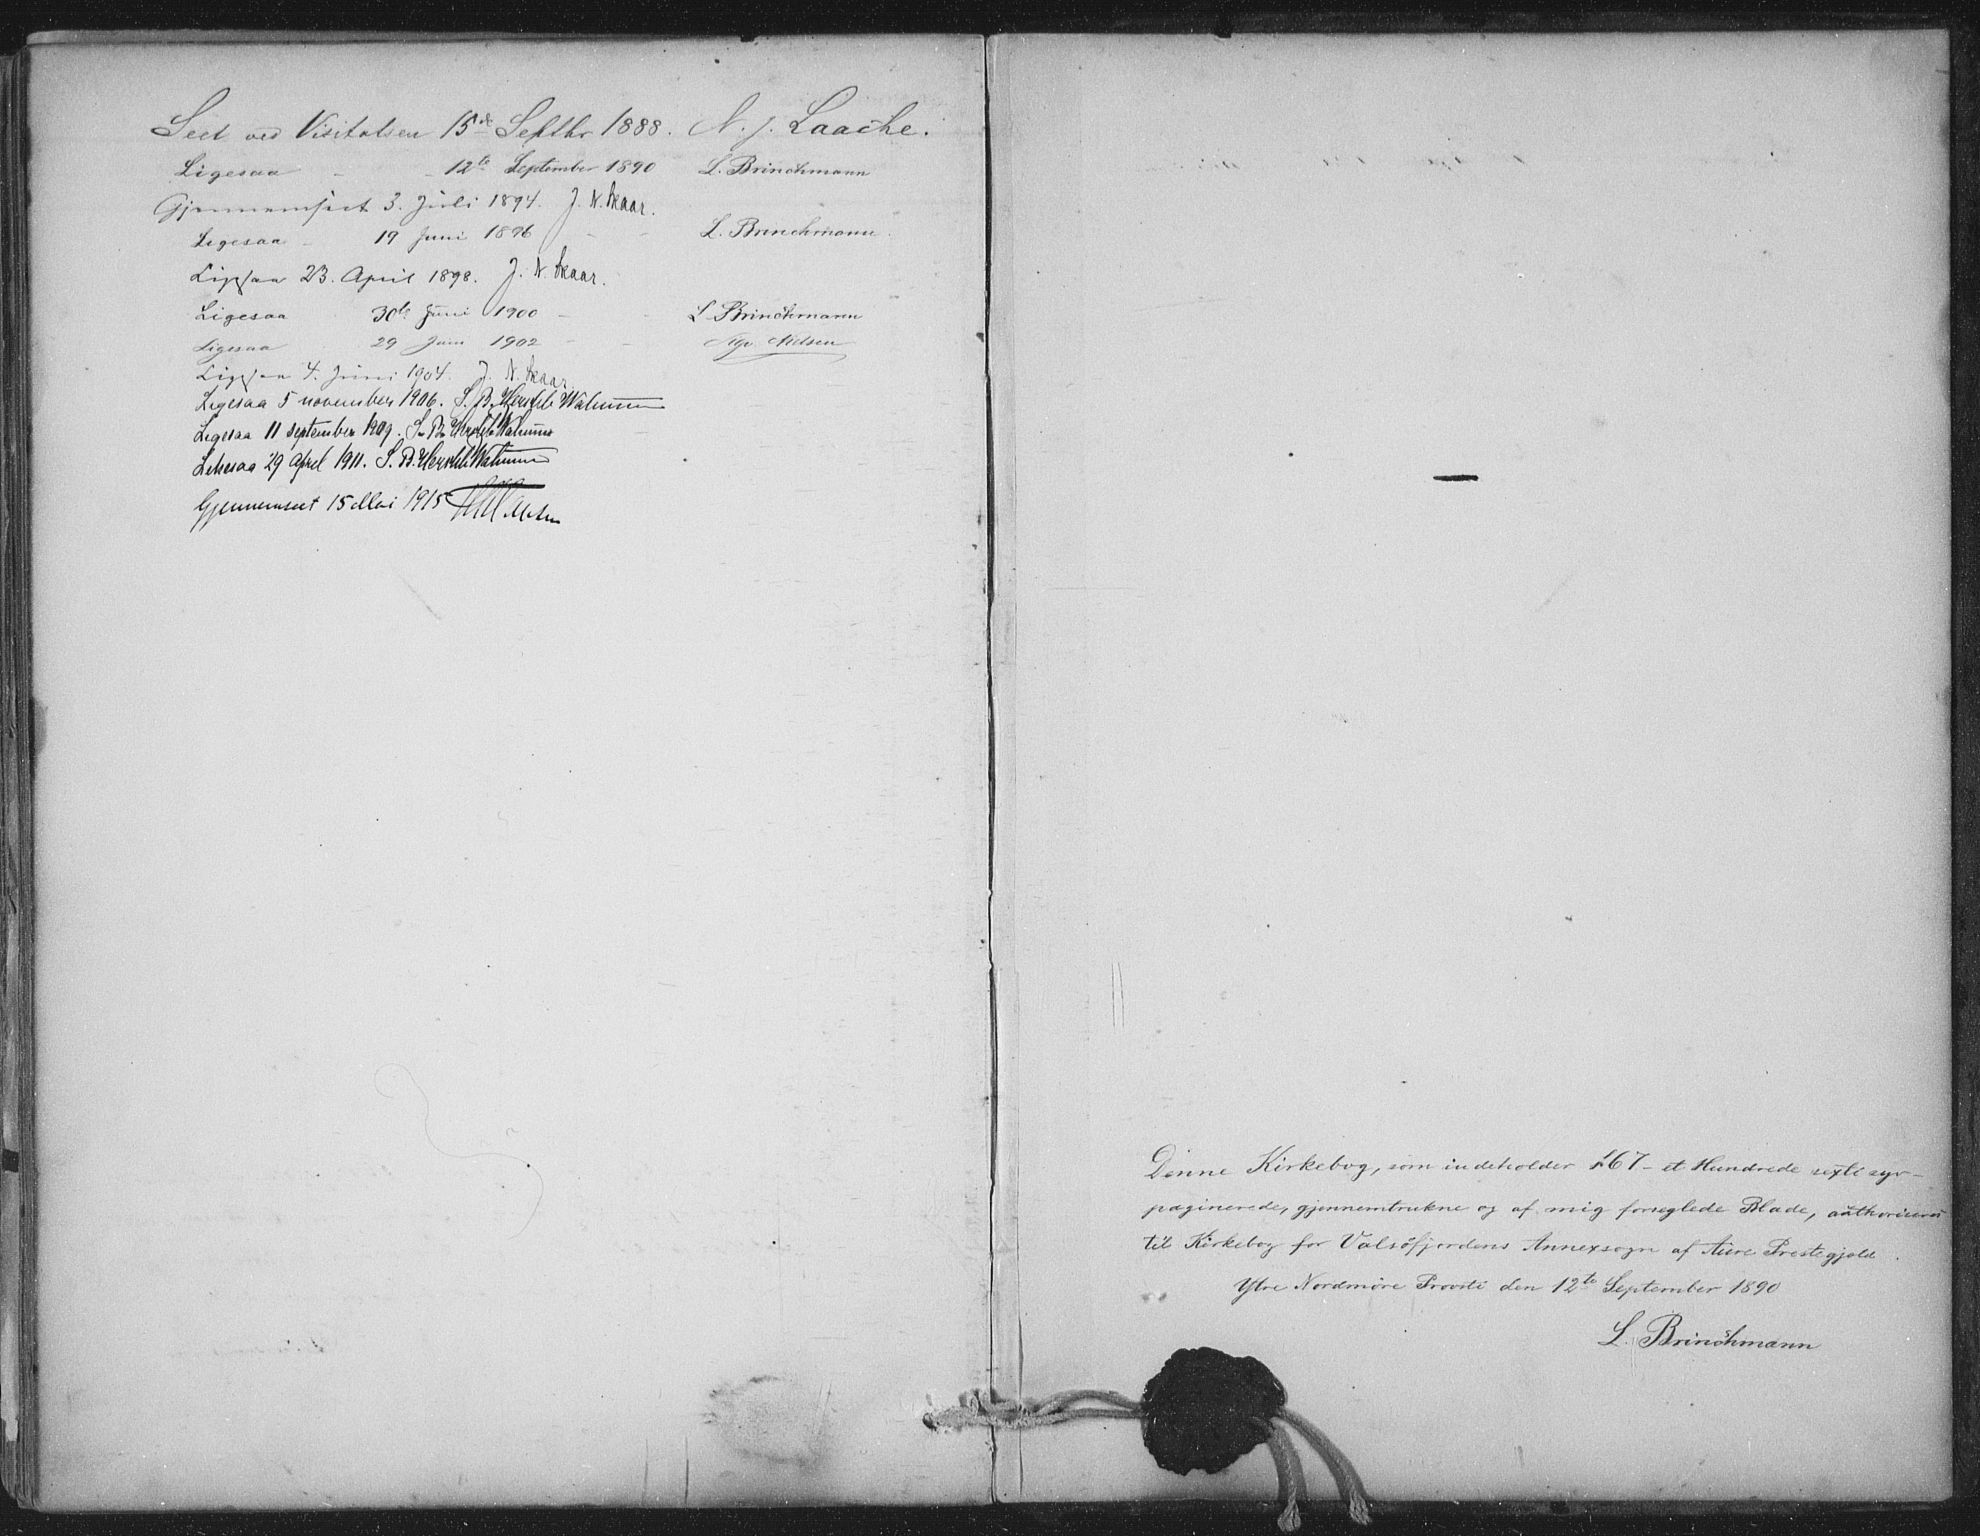 Seet ved Visitatsen 15de Septbr 1888. N. J. Laache.
Ligesaa - - 12te September 1890 L. Brinchmann
Gjennemseet 3. Juli 1894. J. N. Skaar.
Ligesaa - 19 Juni 1896 - - L. Brinchmann.
Ligesaa 23. April 1898. J. N. Skaar.
Ligesaa 30te Juni 1900 - L. Brinchmann
Ligesaa 29 Juni 1902 - - Nielsen
Ligesaa 4. Juni 1904. J. N. Skaar.
Ligesaa 5 november 1906. S. B. Hersleb Walnum
Ligesaa 11 september 1909. S. B. Hersleb Walnum
Likesaa 29 April 1911. S. B. Hersleb Walnum
Gjennemseet 15 Mai 1915
Denne Kirkebog, som indeholder 167 - et Hundrede sexti syv -
paginerede, gjennemtrukne og af mig forseglede Blade, authoriseres
til Kirkebog for Valsøfjordens Annexsogn af Aure Prestegjeld.
Ytre Nordmøre Provsti den 12te September 1890
L. Brinchmann